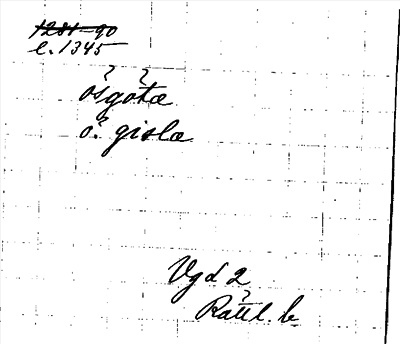 1281-90
l. 1345
osgotæ
o. gislæ
Vgd 2
Rättl. b